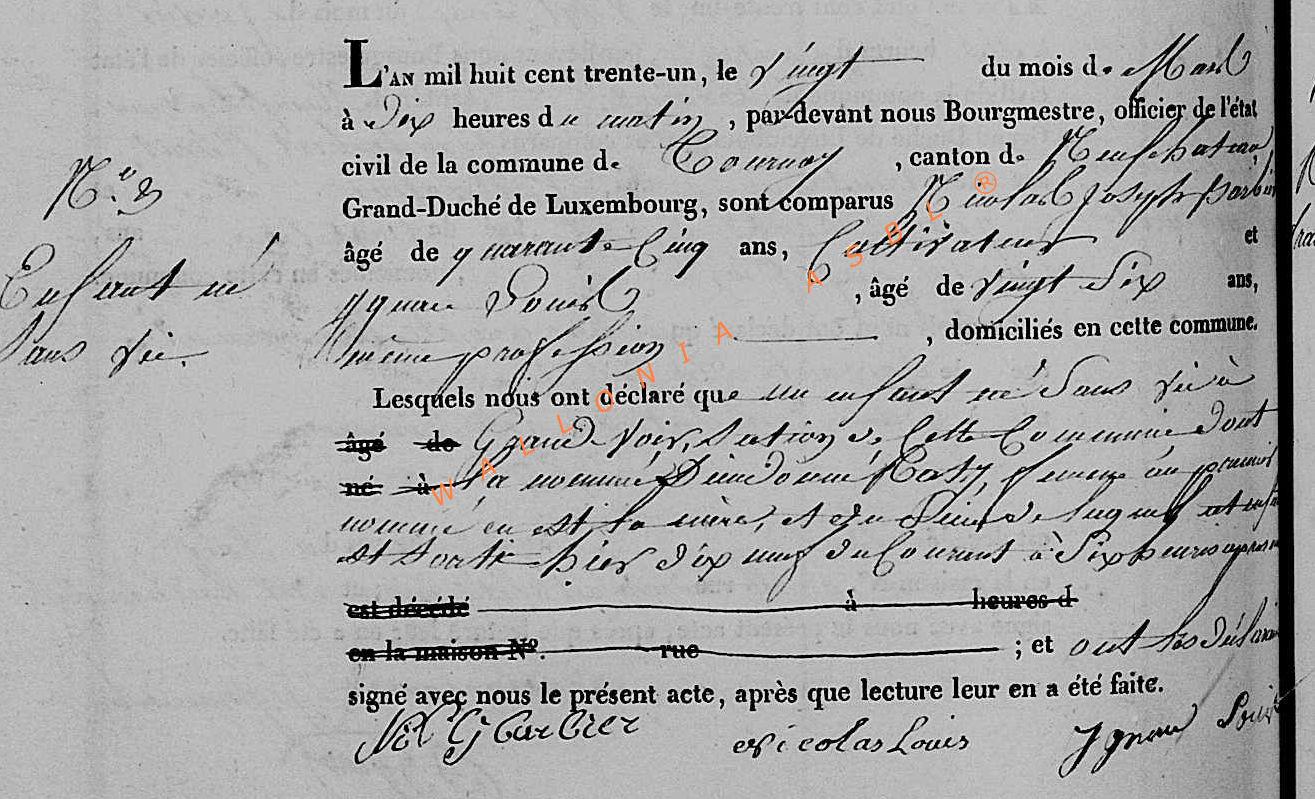 L'AN mil huit cent trente-un, le vingt du mois de Mars
à Dix heures du matin, par-devant nous Bourgmestre, officier de l'état
civil de la commune de Tournay, canton de Neufchateau,
N.º 3
Grand-Duché de Luxembourg, sont comparus Nicolas Joseph Barbier
âgé de quarante Cinq ans, Cultivateur et
Enfant né
Ignace Louis, âgé de vingt Six ans,
Sans vie.
même profession, domiciliés en cette commune.
Lesquels nous ont déclaré que un enfant né Sans vie à
âgé de Grand-Voir, Section de Cette Commune dont
né à la nommée Dieudonnée Katy, femme au premier
nommé en est la mère, et du Sein de laquelle cet enfant
est Sortie hier dix neuf du Courant à Six heures
est décédé à heures d
en la maison Nº. rue ; et ont les Déclarans
signé avec nous le présent acte, après que lecture leur en a été faite.
Barbier Nicolas Louis Ignace Louis
WALLONIA ASBL ®